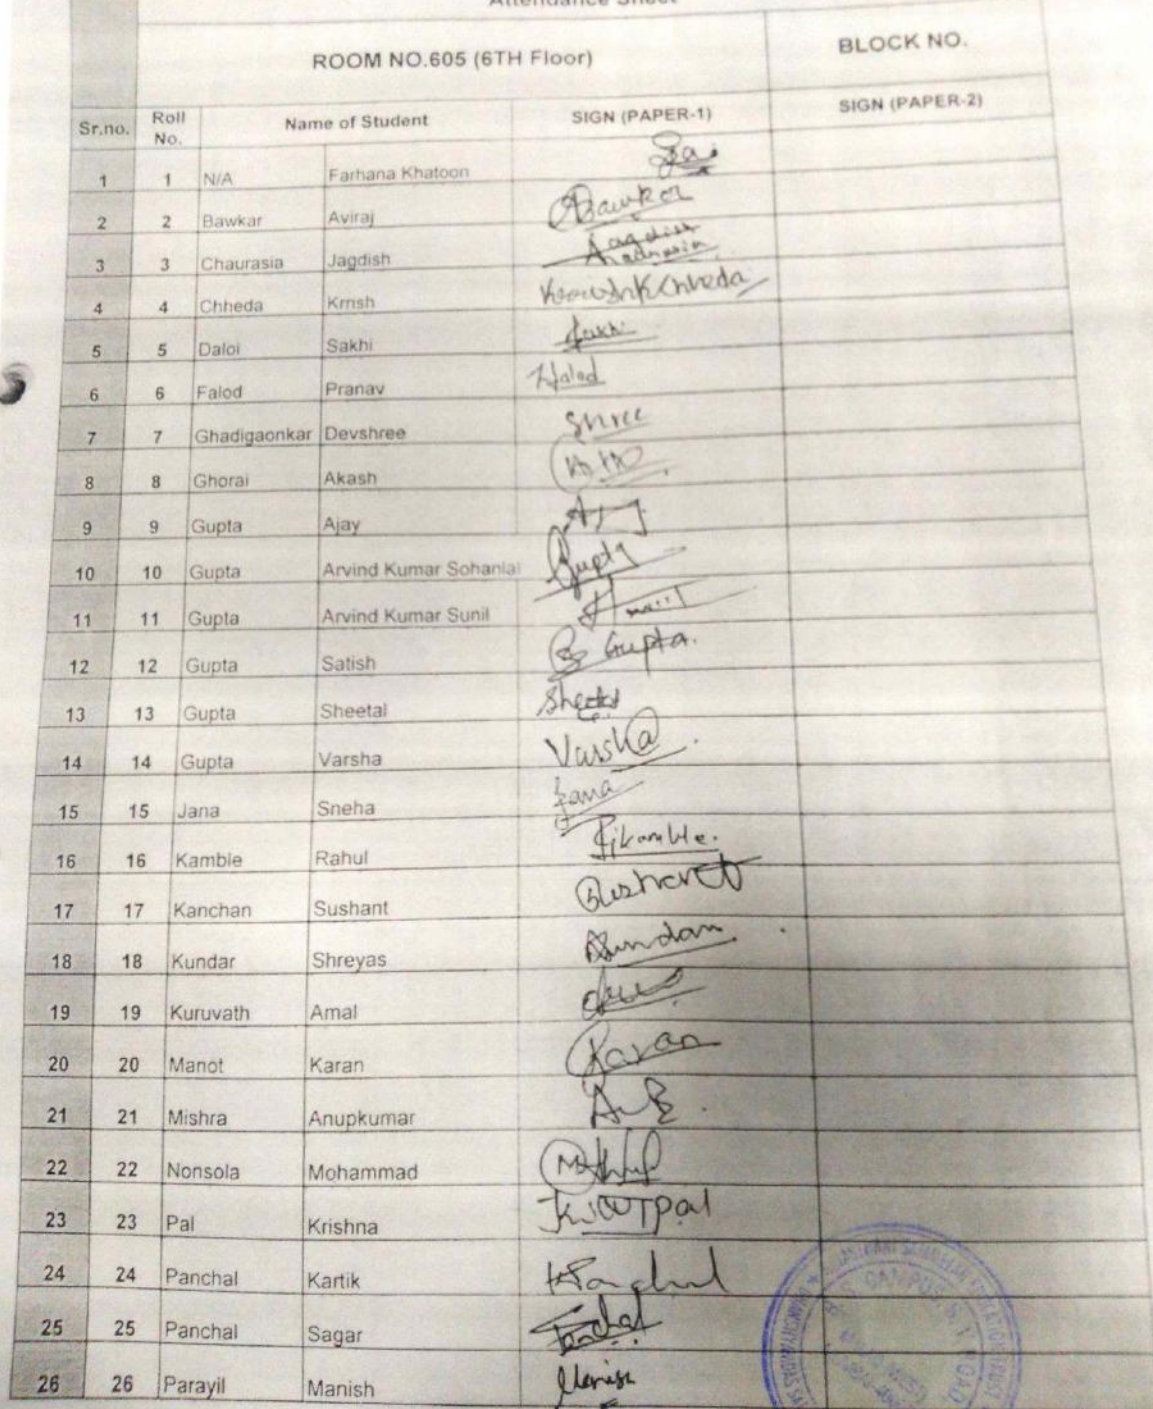 Attendance Sheet
ROOM NO.605 (6TH Floor) BLOCK NO.
Sr.no. Roll No. Name of Student SIGN (PAPER-1) SIGN (PAPER-2)
1 1 N/A Farhana Khatoon
2 2 Bawkar Aviraj Bawkar
3 3 Chaurasia Jagdish
4 4 Chheda Krnsh Chheda
5 5 Daloi Sakhi
6 6 Falod Pranav
7 7 Ghadigaonkar Devshree Shree
8 8 Ghorai Akash
9 9 Gupta Ajay
10 10 Gupta Arvind Kumar Sohanlal Gupta
11 11 Gupta Arvind Kumar Sunil
12 12 Gupta Satish Gupta.
13 13 Gupta Sheetal Sheetal
14 14 Gupta Varsha Varsha
15 15 Jana Sneha Jana
16 16 Kamble Rahul
17 17 Kanchan Sushant
18 18 Kundar Shreyas
19 19 Kuruvath Amal
20 20 Manot Karan Karan
21 21 Mishra Anupkumar
22 22 Nonsola Mohammad
23 23 Pal Krishna
24 24 Panchal Kartik
25 25 Panchal Sagar
26 26 Parayil Manish Manish
CAMPUS